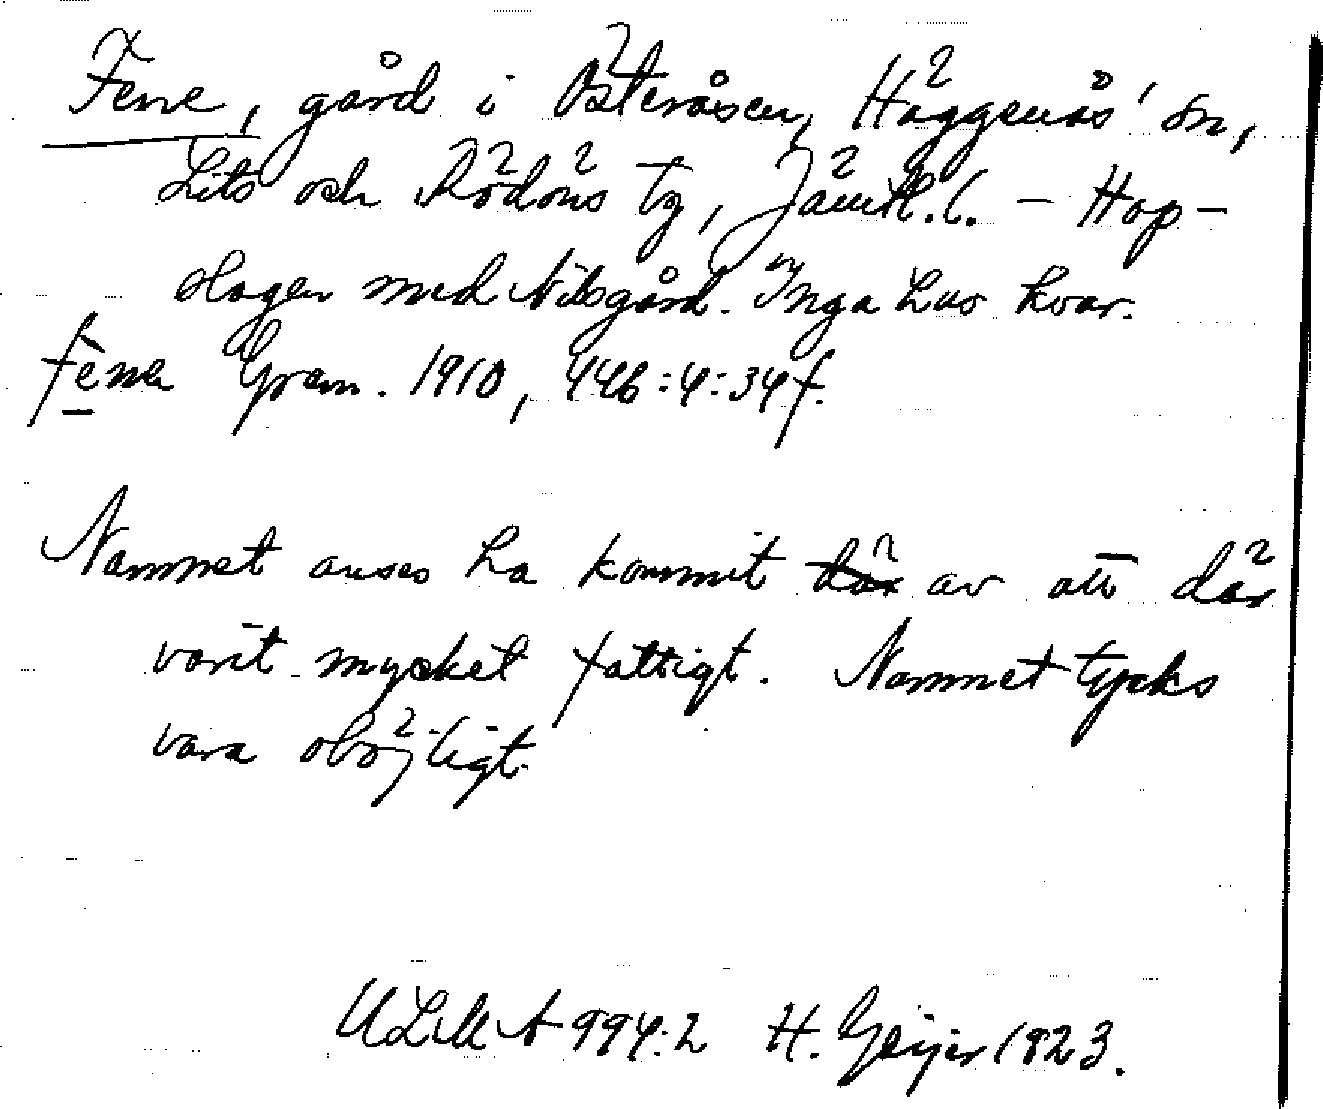 Fene, gård i Österåsen, Häggenås' sn,
Lits och Rödöns tg, Jämtl. l. – Hop-
slagen med Nilsgård. Inga hus kvar.
fènen Gram. 1910, 446:4:34 f.
Namnet anses ha kommit där av att där
varit mycket fattigt. Namnet tycks
vara oböjligt.
ULMA 994:2 H. Geijer 1923.